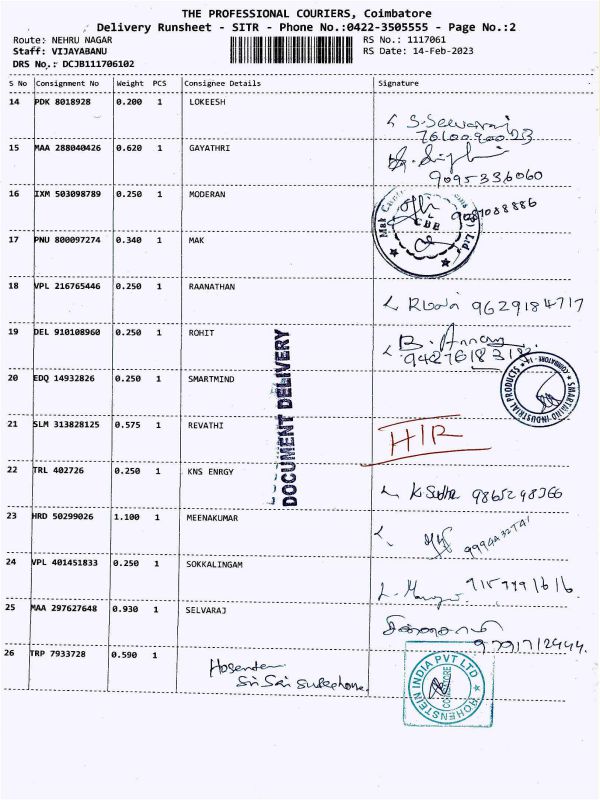 THE PROFESSIONAL COURIERS, Coimbatore
Delivery Runsheet - SITR - Phone No.:0422-3505555 - Page No.:2
Route: NEHRU NAGAR
RS No.: 1117061
Staff: VIJAYABANU
RS Date: 14-Feb-2023
DRS No.: DCJB111706102
S No Consignment No Weight PCS Consignee Details Signature
14 PDK 8018928 0.200 1 LOKEESH
15 MAA 288040426 0.620 1 GAYATHRI
9095336060
16 IXM 503098789 0.250 1 MODERAN
17 PNU 800097274 0.340 1 MAK
CBE
18 VPL 216765446 0.250 1 RAANATHAN
9629184717
19 DEL 910108960 0.250 1 ROHIT
20 EDQ 14932826 0.250 1 SMARTMIND
SMARTMIND INDUSTRIAL PRODUCTS ★ COIMBATORE - 14 ★
DOCUMENT DELIVERY
21 SLM 313828125 0.575 1 REVATHI
H/R
22 TRL 402726 0.250 1 KNS ENRGY
K Sudha 9865298366
23 HRD 50299026 1.100 1 MEENAKUMAR
24 VPL 401451833 0.250 1 SOKKALINGAM
25 MAA 297627648 0.930 1 SELVARAJ
26 TRP 7933728 0.590 1
Sri Sai
HOHENSTEIN INDIA PVT LTD
COIMBATORE